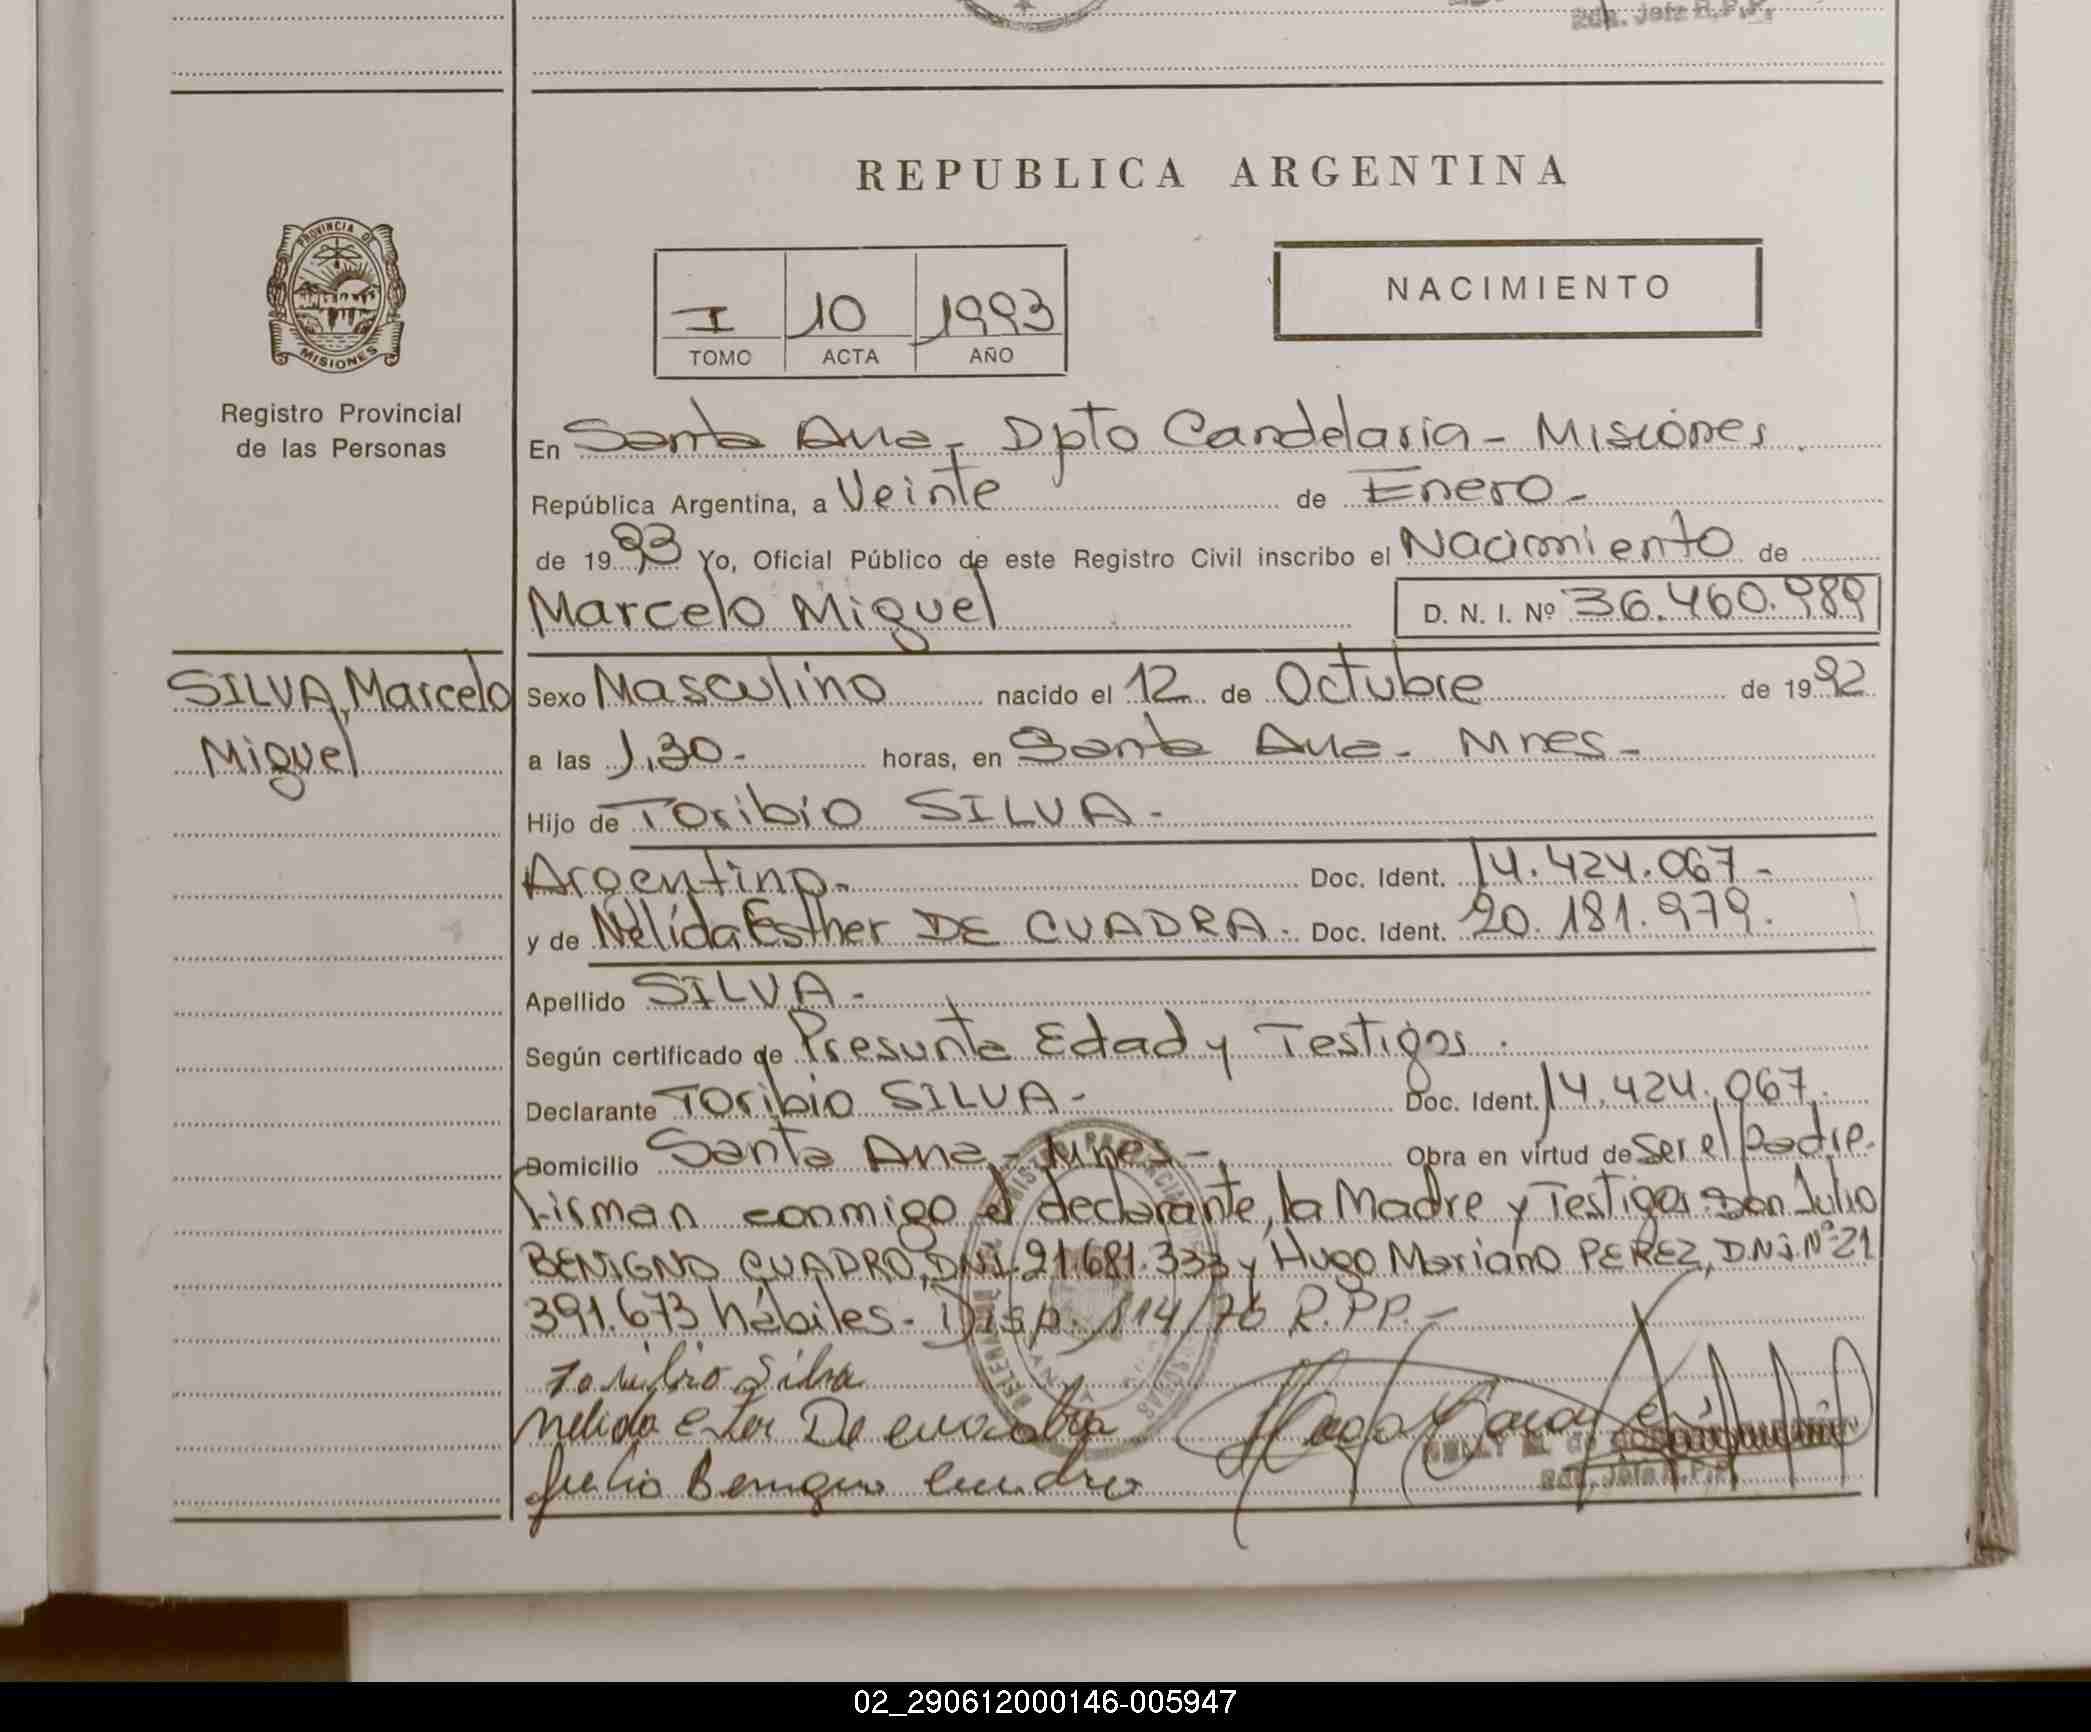 2da. Jefa R.P.P.
REPUBLICA ARGENTINA
PROVINCIA DE
MISIONES
Registro Provincial
de las Personas
I 10 1993
TOMO ACTA AÑO
NACIMIENTO
En Santa Ana - Dpto Candelaria - Misiones.
República Argentina, a Veinte de Enero -
de 1993 Yo, Oficial Público de este Registro Civil inscribo el Nacimiento de
Marcelo Miguel D. N. I. Nº 36.460.989
SILVA, Marcelo
Miguel
Sexo Masculino nacido el 12 de Octubre de 1992
a las 1,30 - horas, en Santa Ana - Mnes -
Hijo de Toribio SILVA -
Argentino - Doc. Ident. 14.424.067 -
y de Nélida Esther DE CUADRA - Doc. Ident. 20.181.979.
Apellido SILVA -
Según certificado de Presunta Edad y Testigos.
Declarante Toribio SILVA - Doc. Ident. 14.424.067.
Domicilio Santa Ana - Mnes - Obra en virtud de ser el Padre.
Firman conmigo el declarante, la Madre y Testigos: Don Julio
BENIGNO CUADRO, DNI. 21.681.333 y Hugo Mariano PEREZ, D.N.I. Nº 21
391.673 hábiles - Disp. 114/76 R.P.P. -
Toribio Silva
Nelida Ester De cuadra
Julio Benigno Cuadro
2da. Jefa R.P.P.
02_290612000146-005947